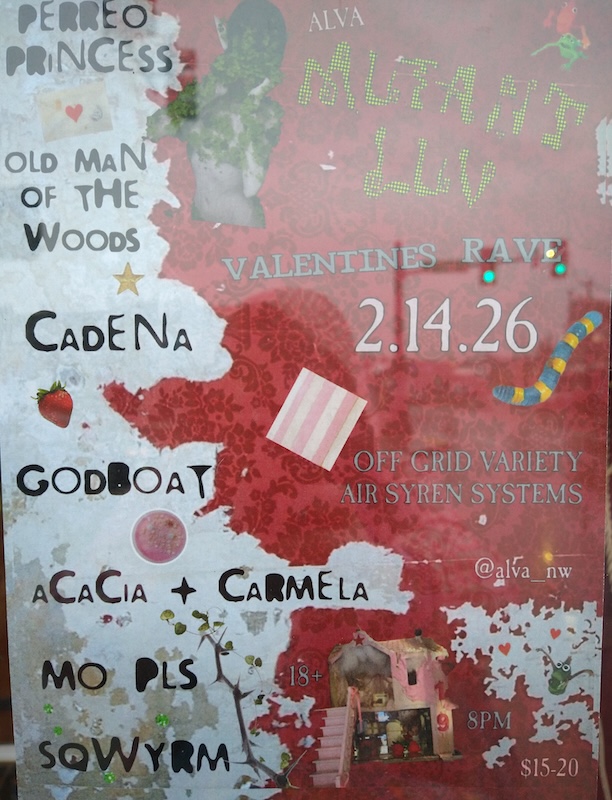 PERREO
PRINCESS
OLD MAN
OF THE
WOODS
CADENA
GODBOAT
ACACIA + CARMELA
MO PLS
SQWYRM
ALVA
MUTANT
LUV
VALENTINES RAVE
2.14.26
OFF GRID VARIETY
AIR SYREN SYSTEMS
@alva_nw
18+
8PM
$15-20